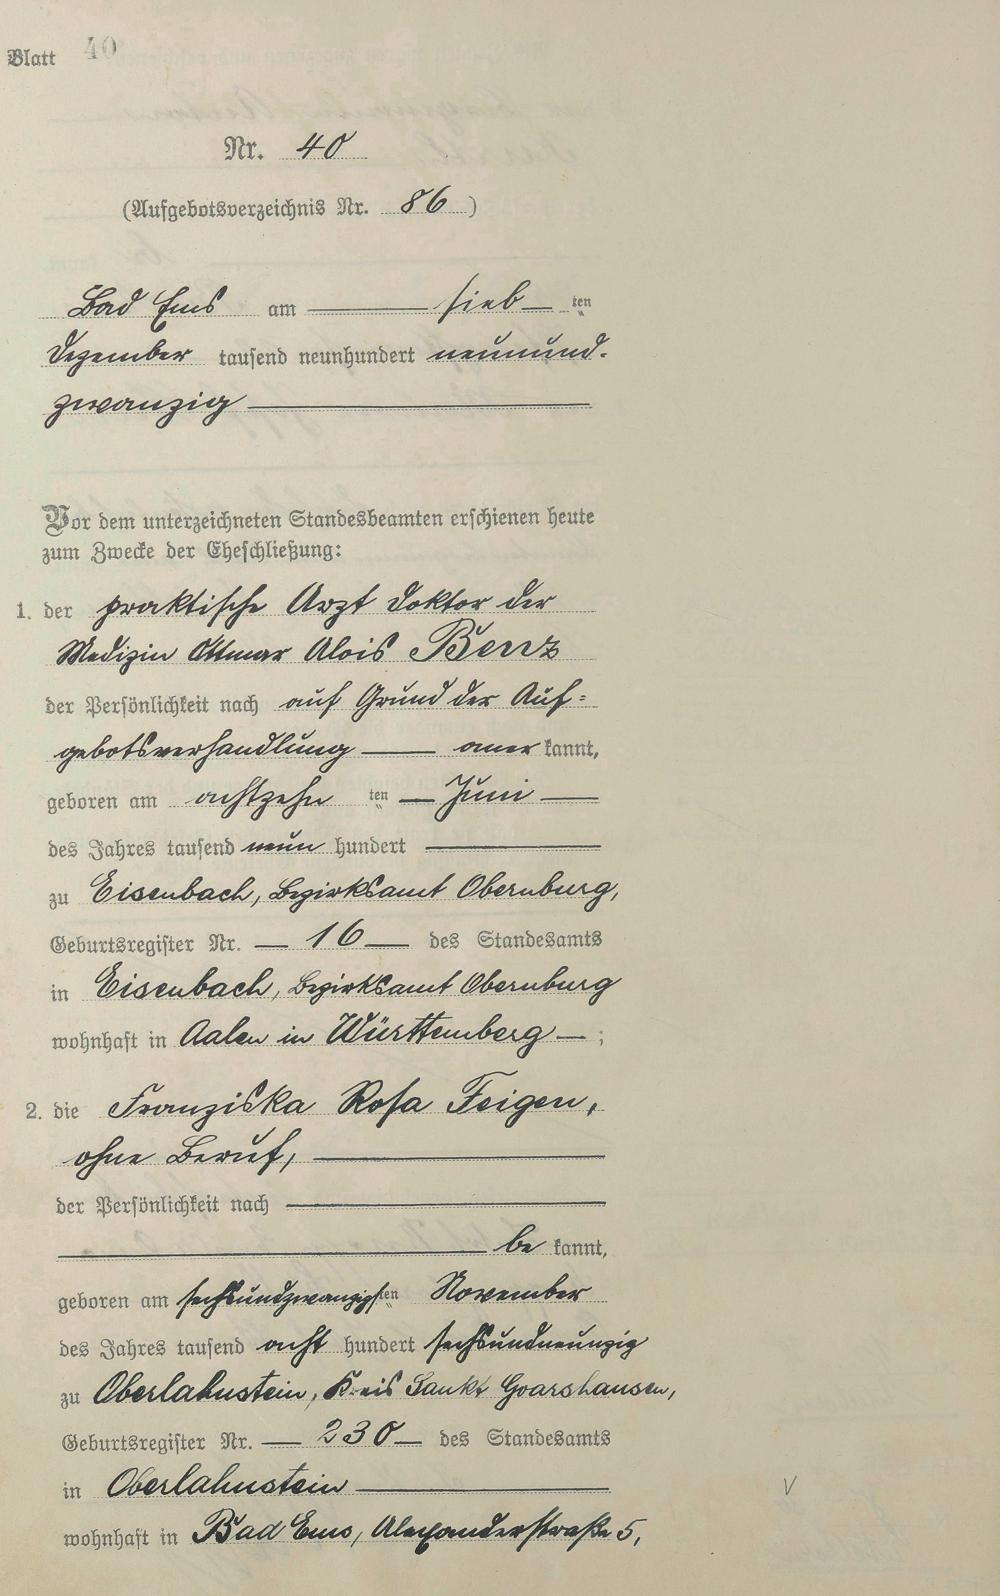 Blatt 40
Nr. 40
(Aufgebotsverzeichnis Nr. 86)
Bad Ems am sieb ten
Dezember tausend neunhundert neunund-
zwanzig
Vor dem unterzeichneten Standesbeamten erschienen heute
zum Zwecke der Eheschließung:
1. der praktische Arzt Doktor der
Medizin Ottmar Alois Benz
der Persönlichkeit nach auf Grund der Auf=
gebotsverhandlung anerkannt,
geboren am achtzehn ten Juni
des Jahres tausend neun hundert
zu Eisenbach, Bezirksamt Obernburg,
Geburtsregister Nr. 16 des Standesamts
in Eisenbach, Bezirksamt Obernburg
wohnhaft in Aalen in Württemberg ;
2. die Franziska Rosa Feigen,
ohne Beruf,
der Persönlichkeit nach
be kannt,
geboren am sechsundzwanzigsten November
des Jahres tausend acht hundert sechsundneunzig
zu Oberlahnstein, Kreis Sankt Goarshausen,
Geburtsregister Nr. 230 des Standesamts
in Oberlahnstein
wohnhaft in Bad Ems, Alexanderstraße 5,